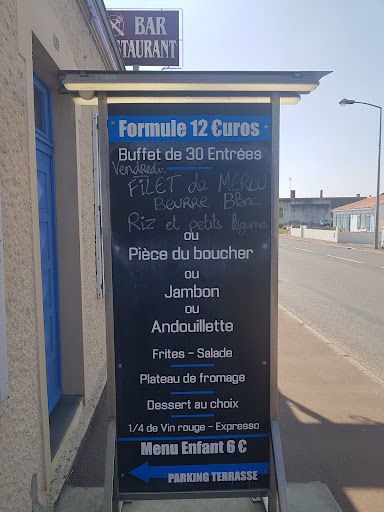 BAR
RESTAURANT
Formule 12 €uros
Buffet de 30 Entrées
Vendredi
FILET de MERLU
BEURRE Blanc
Riz et petits légume
ou
Pièce du boucher
ou
Jambon
ou
Andouillette
Frites - Salade
Plateau de fromage
Dessert au choix
1/4 de Vin rouge - Expresso
Menu Enfant 6 €
PARKING TERRASSE